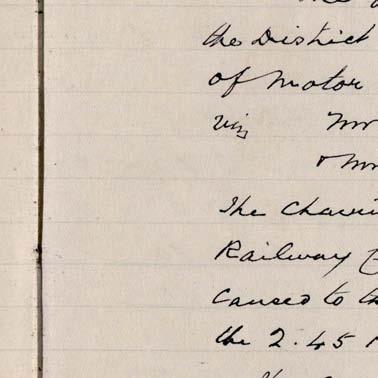 the District
of Motor
viz Mr
& Mr
The Chair
Railway
caused to th
the 2.45